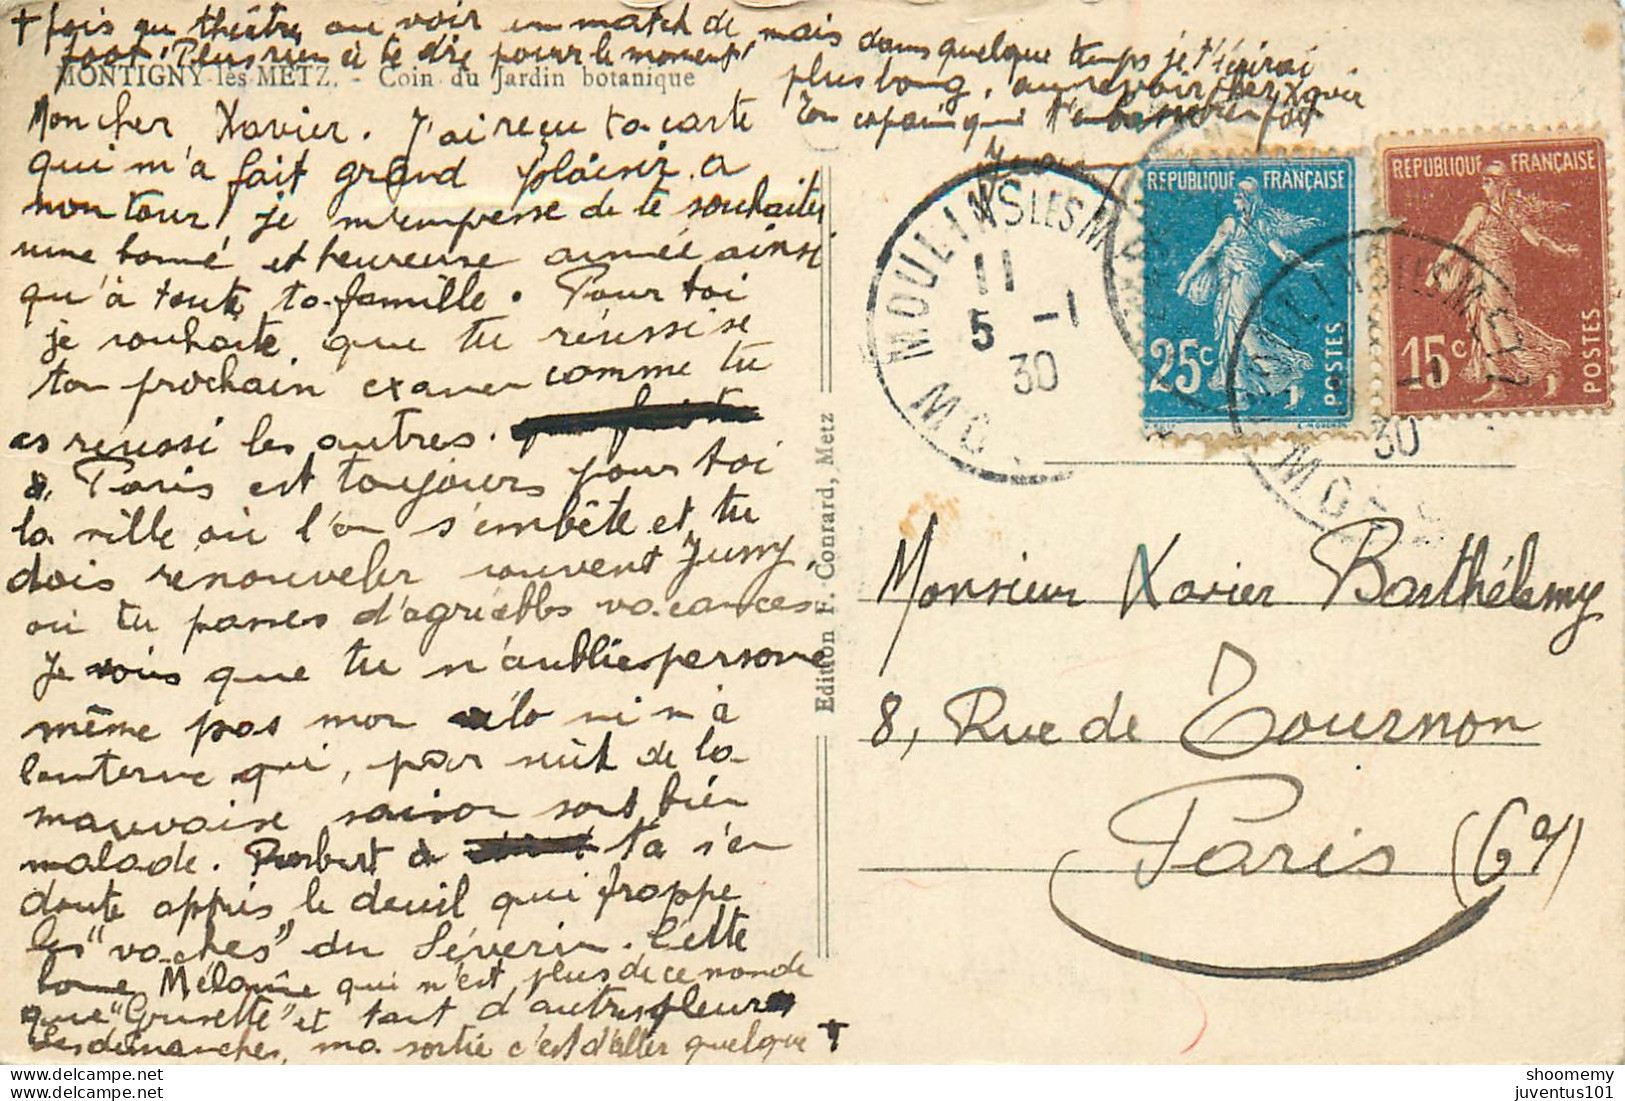 MONTIGNY-lès-METZ. - Coin du Jardin botanique
Mon cher Xavier. J'ai reçu ta carte
qui m'a fait grand plaisir. a
mon tour je m'empresse de te souhaiter
une bonne et heureuse année ainsi
qu'à toute ta famille. Pour toi
je souhaite que tu réussisse
ton prochain examen comme tu
as reussi les autres.
Paris est toujours pour toi
la ville où l'on s'embête et tu
dois renouveler souvent Jussy,
où tu passes d'agréables vacances
Je vois que tu n'oublies personne
même pas mon vélo ni m à
lanterne qui, par suit de la
mauvaise saison sont bien
malade. à ta s'en
doute appris le deuil qui frappe
les "vaches" du Séverin. Cette
bonne Mélanie qui n'est plus de ce monde
que "Grisette" et tant d'autres pleure
Les dimanches, ma sortie c'est d'aller quelque +
+ fois au théâtre ou voir un match de
foot. Plus rien à te dire pour le moment
mais dans quelque temps je t'écrirai
plus long, au revoir cher Xavier
Ton copain qui t'embrasse bien fort
Edition F. Conrard, Metz
MOULINS LES M
11
5 -1
30
MO
REPUBLIQUE FRANÇAISE
25c
POSTES
REPUBLIQUE FRANÇAISE
15c
POSTES
MOULINS LES METZ
-1
30
MO
Monsieur Xavier Barthélemy
8, Rue de Tournon
Paris (6e)
shoomemy
juventus101